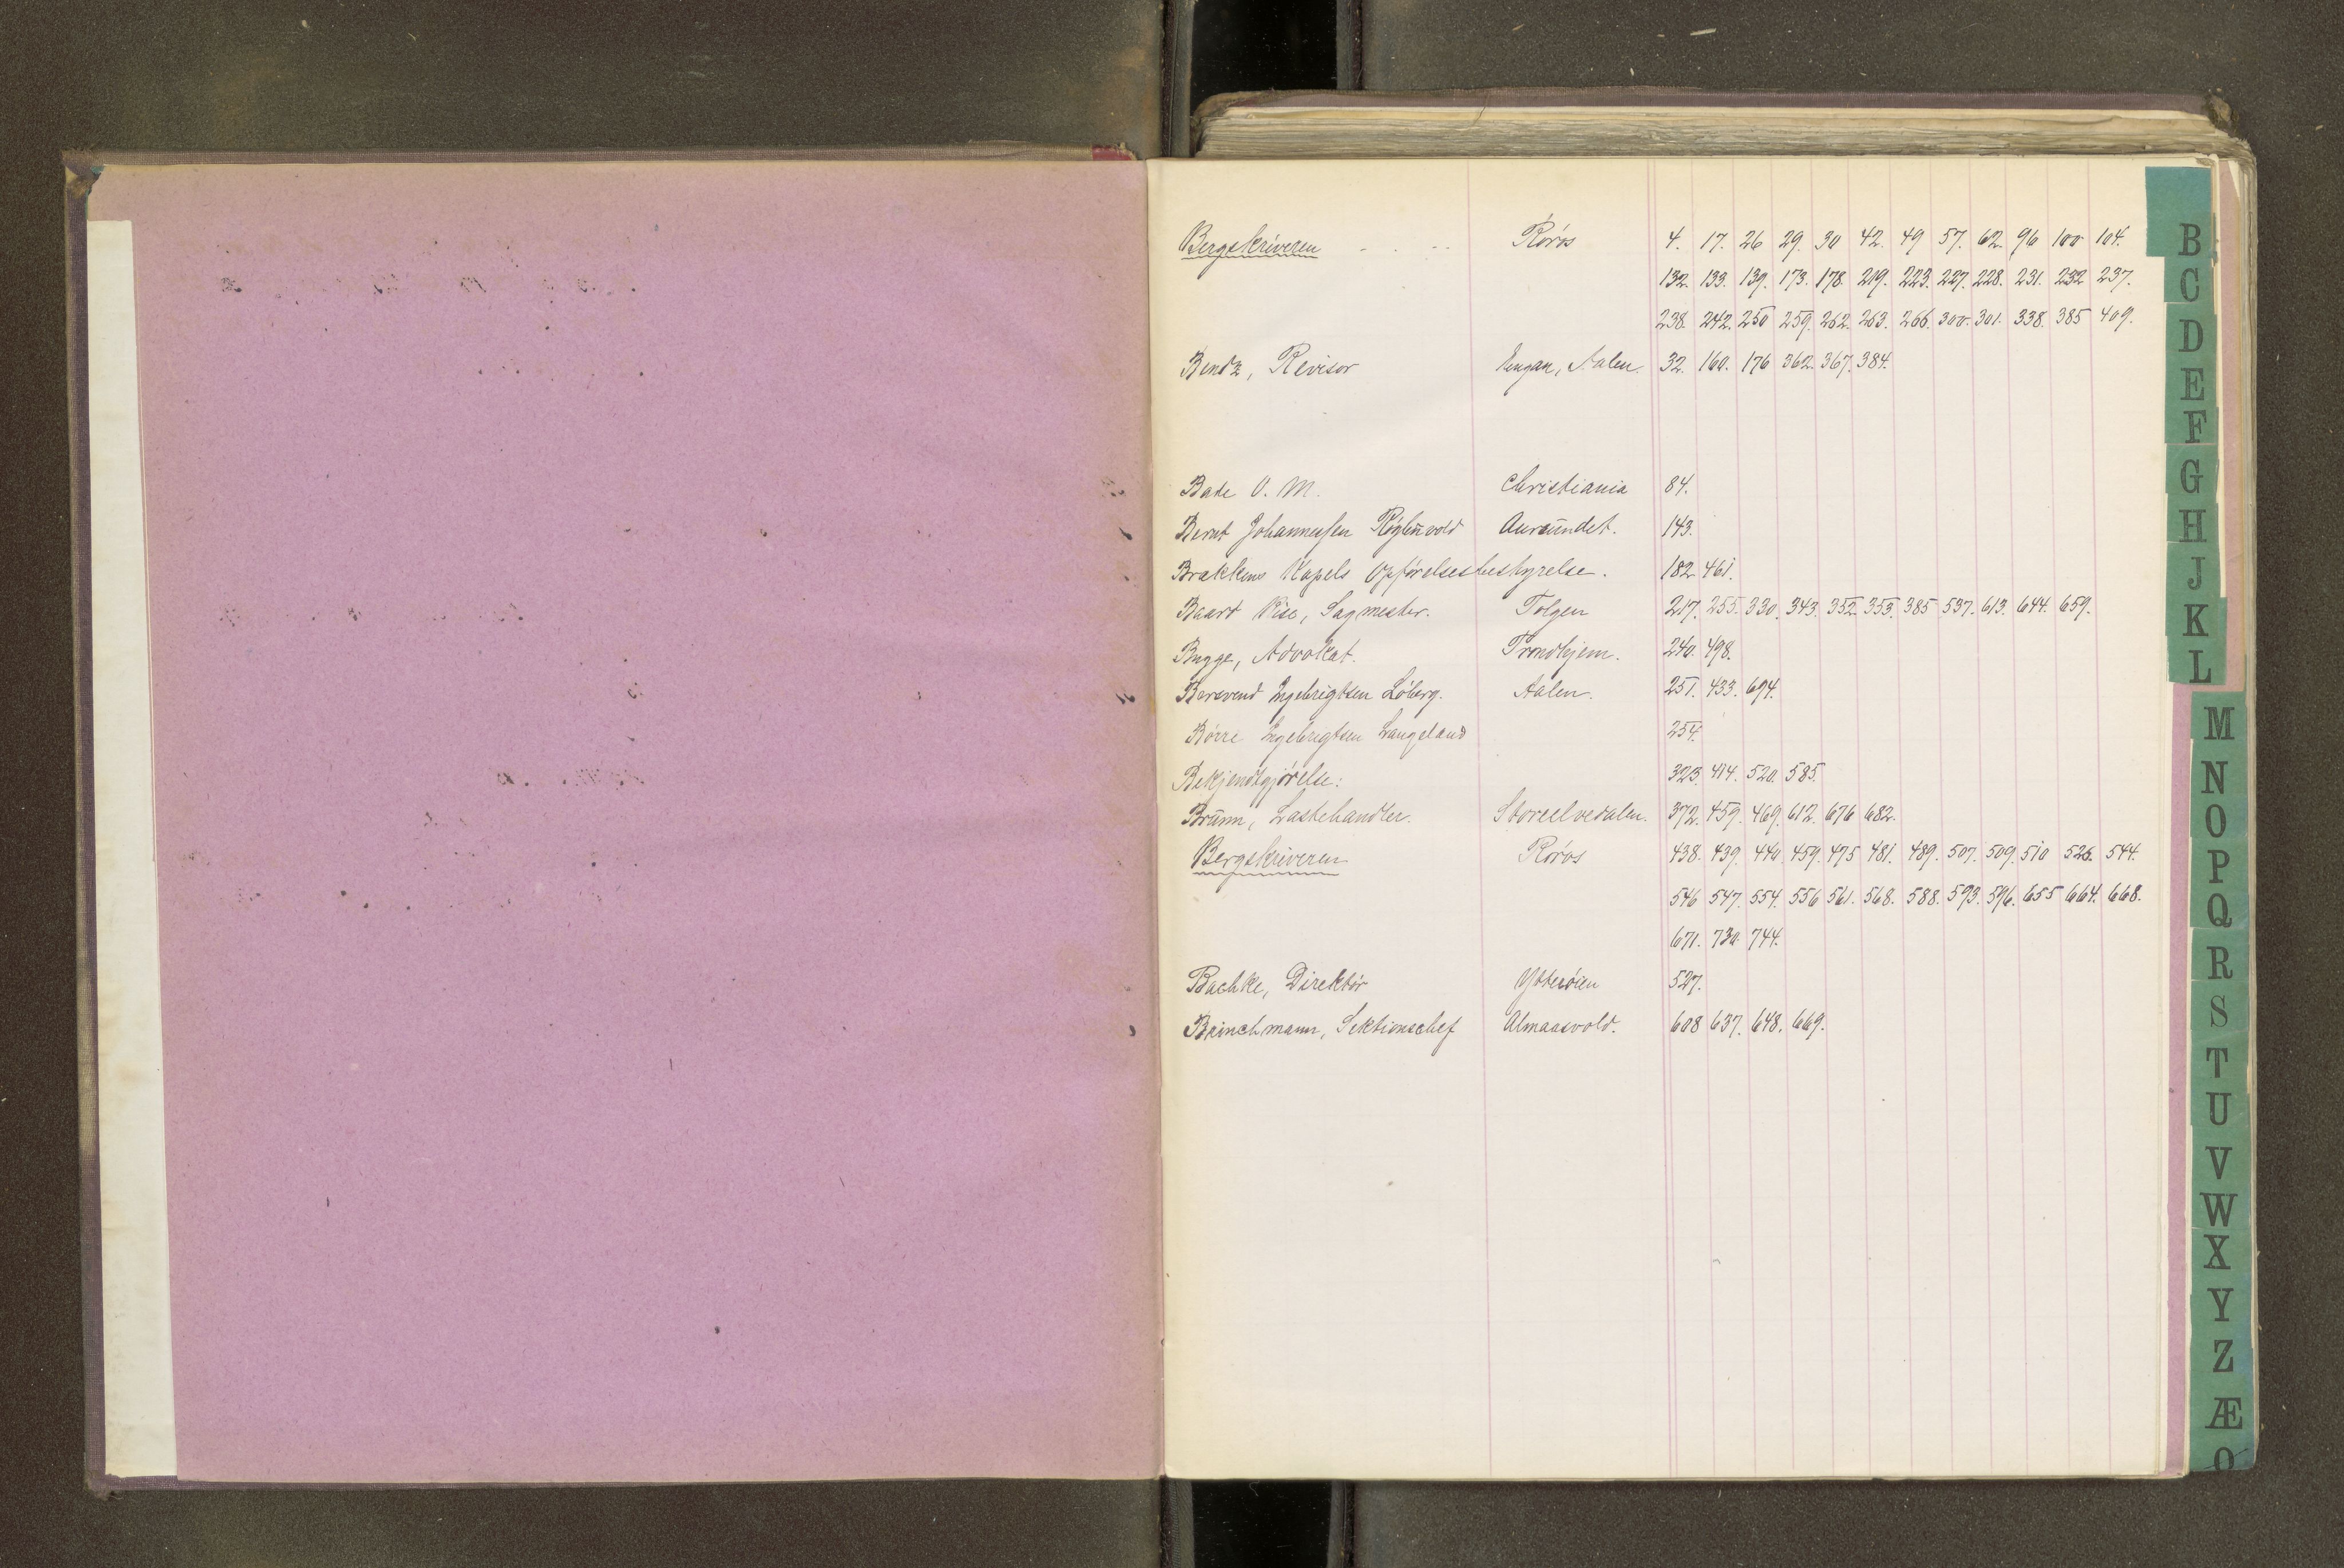 Bergskriveren Röros 4. 17. 26 29. 30 42. 49 57. 62. 96 100 104.
132. 133. 139. 173. 178. 219. 223. 227. 228. 231. 232 237.
238. 242. 250 259. 262. 263. 266. 300. 301. 338. 385 409.
Bendz, Revisor Engan, Aalen. 32. 160. 176 362. 367. 384.
Bade O. M. Christiania 84.
Bernt Johannessen Aursundet. 143.
Brækkens Kapels Opförelsesbestyrelse. 182 461.
Baard Vise, Sagmester. Tolgen 217. 255. 330. 343. 352. 353. 385. 537. 613. 644. 659.
Bugge, Advokat. Trondhjem. 240. 498.
Bersvend Ingebrigtsen Löberg. Aalen. 251. 433. 694.
Börre Ingebrigtsen Langeland 254.
Bekjendtgjörelse: 323. 414. 520. 585.
Brünn, Lastehandler. Storelvedalen. 372. 459. 469. 612. 676 682.
Bergskriveren Röros 438. 439. 440. 459. 475 481. 489. 507. 509. 510 526. 544.
546 547. 554. 556 561. 568. 588. 593. 596. 655 664. 668.
671. 730. 744.
Bachke, Direktör Ytteröen 527.
Brinchmann, Sektionschef Almaasvold. 608 637. 648. 669.
B
C
D
E
F
G
H
J
K
L
M
N
O
P
Q
R
S
T
U
V
W
X
Y
Z
Æ
Ø